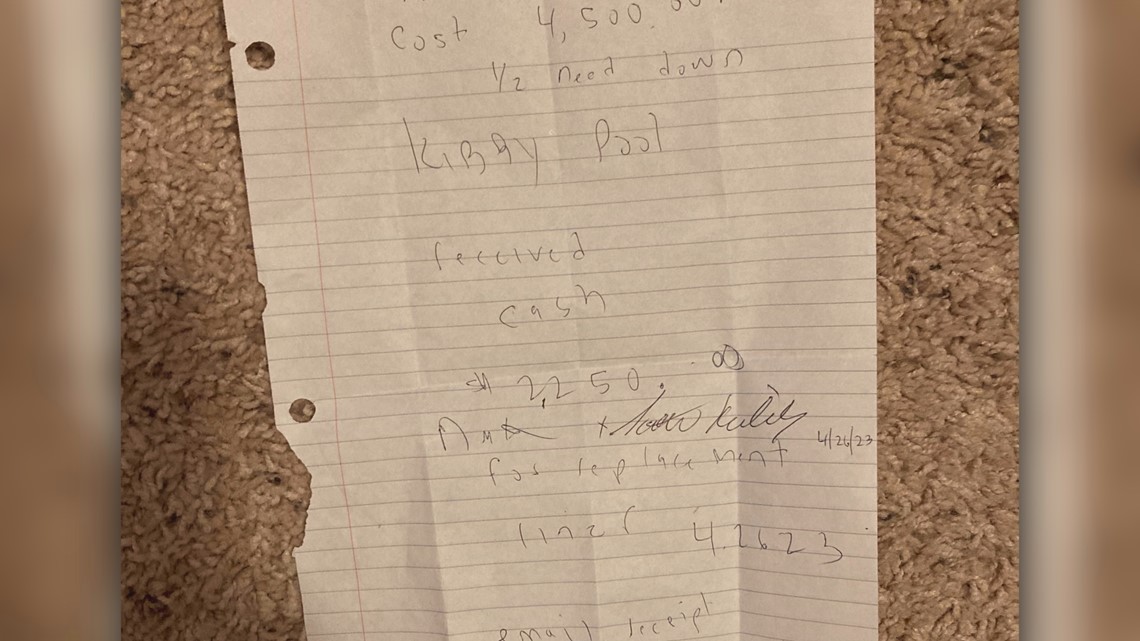 Cost 4,500.00
1/2 need down
KIRBY Pool
received
cash
$ 2,250.00
4/26/23
for replacement
liner 4.26.23
email receipt